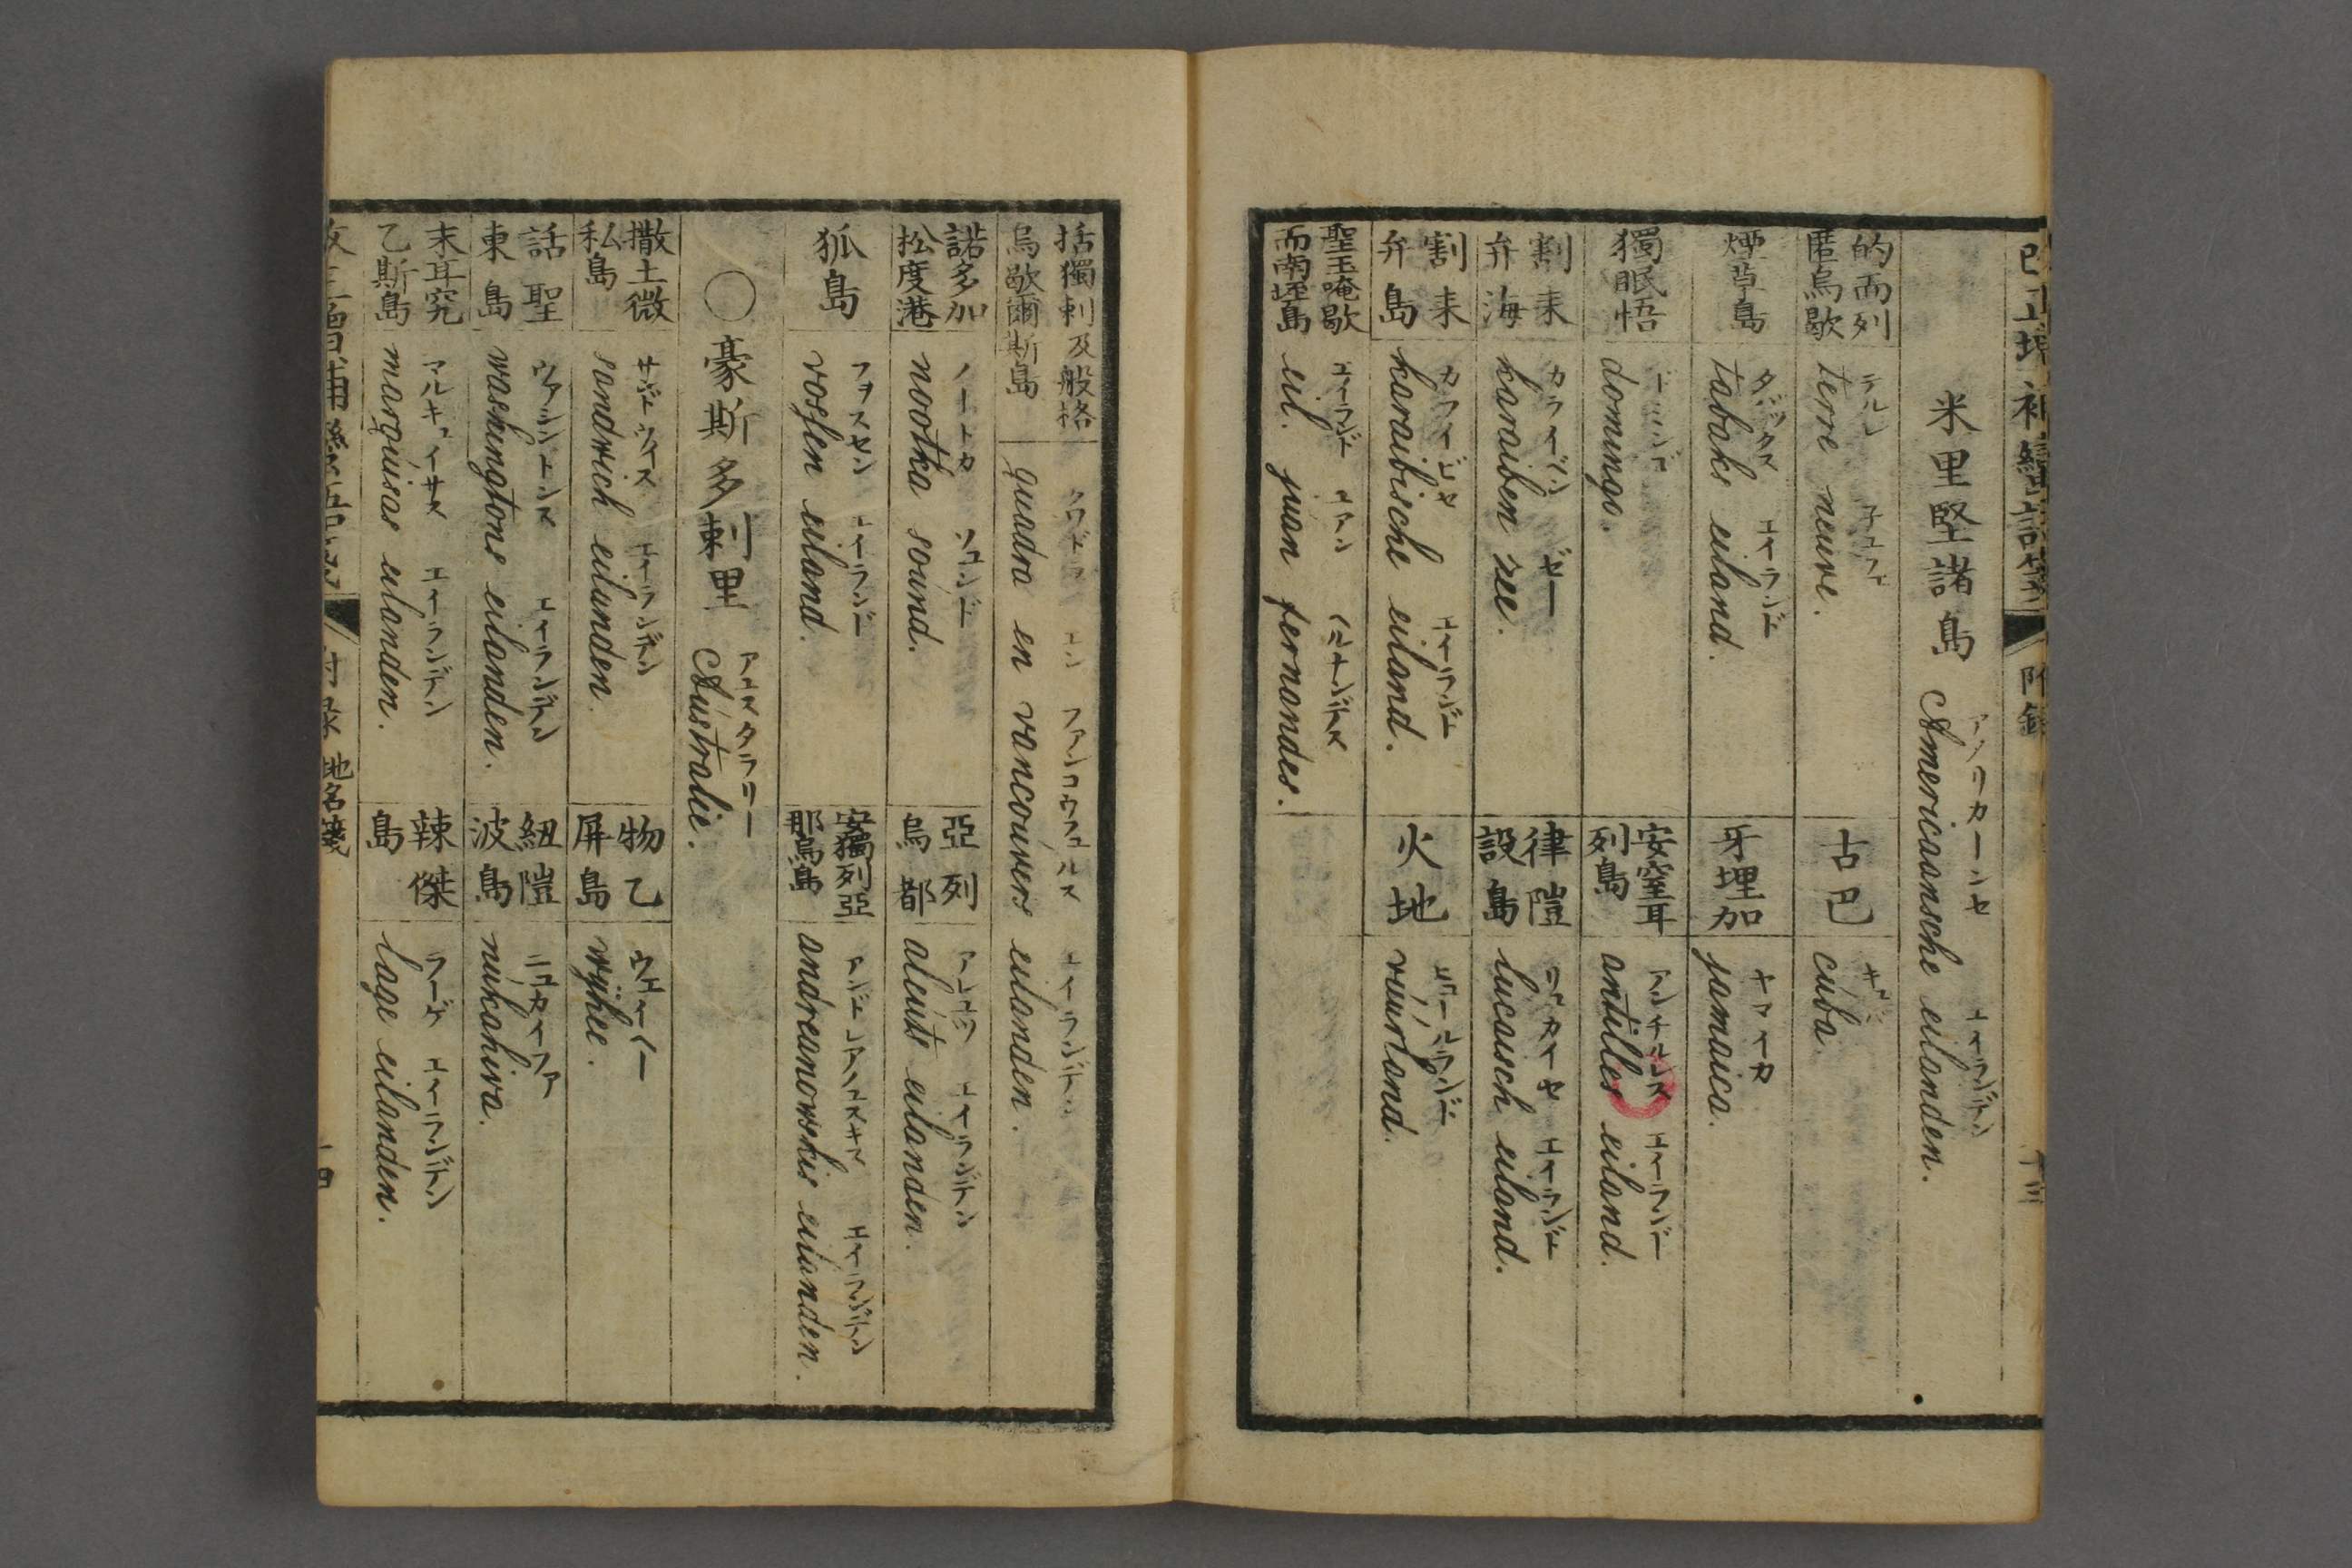 米里堅諸島 Americaansche eilanden.
アメリカーンセ エイランデン
的而列匿烏歇 terre neuve.
テルレ 子ユフェ
古巴 cuba.
キュバ
煙草島 tabaks eiland.
タバックス エイランド
牙埋加 jamaica.
ヤマイカ
獨眠悟 domingo.
ドミンゴ
安窒耳列島 antilles eiland.
アンチルレス エイランド
割耒弁海 karaiben zee.
カライベン ゼー
律愷設島 lucaisch eiland.
リュカイセ エイランド
割耒弁島 karaibische eiland.
カライビセ エイランド
火地 vuurland.
聖王唵歇而南垤島 eil. juan fernandes.
エイランド ユアン ヘルナンデス
括獨剌及般格烏歇爾斯島 quadra en vancouvers eilanden.
クワドラ エン ファンコウフェルス エイランデン
諾多加松度港 nootka sound.
ノートカ ソユンド
亞列烏都 aleuts eilanden.
アレユツ エイランデン
狐島 vossen eiland.
フヲスセン エイランド
安獨列亞那烏島 andreanowskis eilanden.
○豪斯多剌里 Australie.
アユスタラリー
撒土微私島 sandwich eilanden.
サンドウイス エイランデン
物乙屏島 wÿhee.
話聖東島 washingtons eilanden.
ワアシントンス エイランデン
紐愷波島 nukahiva.
ニュカイファ
末耳究乙斯島 marquisas eilanden.
マルキュイサス エイランデン
辣傑島 lage eilanden.
ラーゲ エイランデン
附录 地名箋